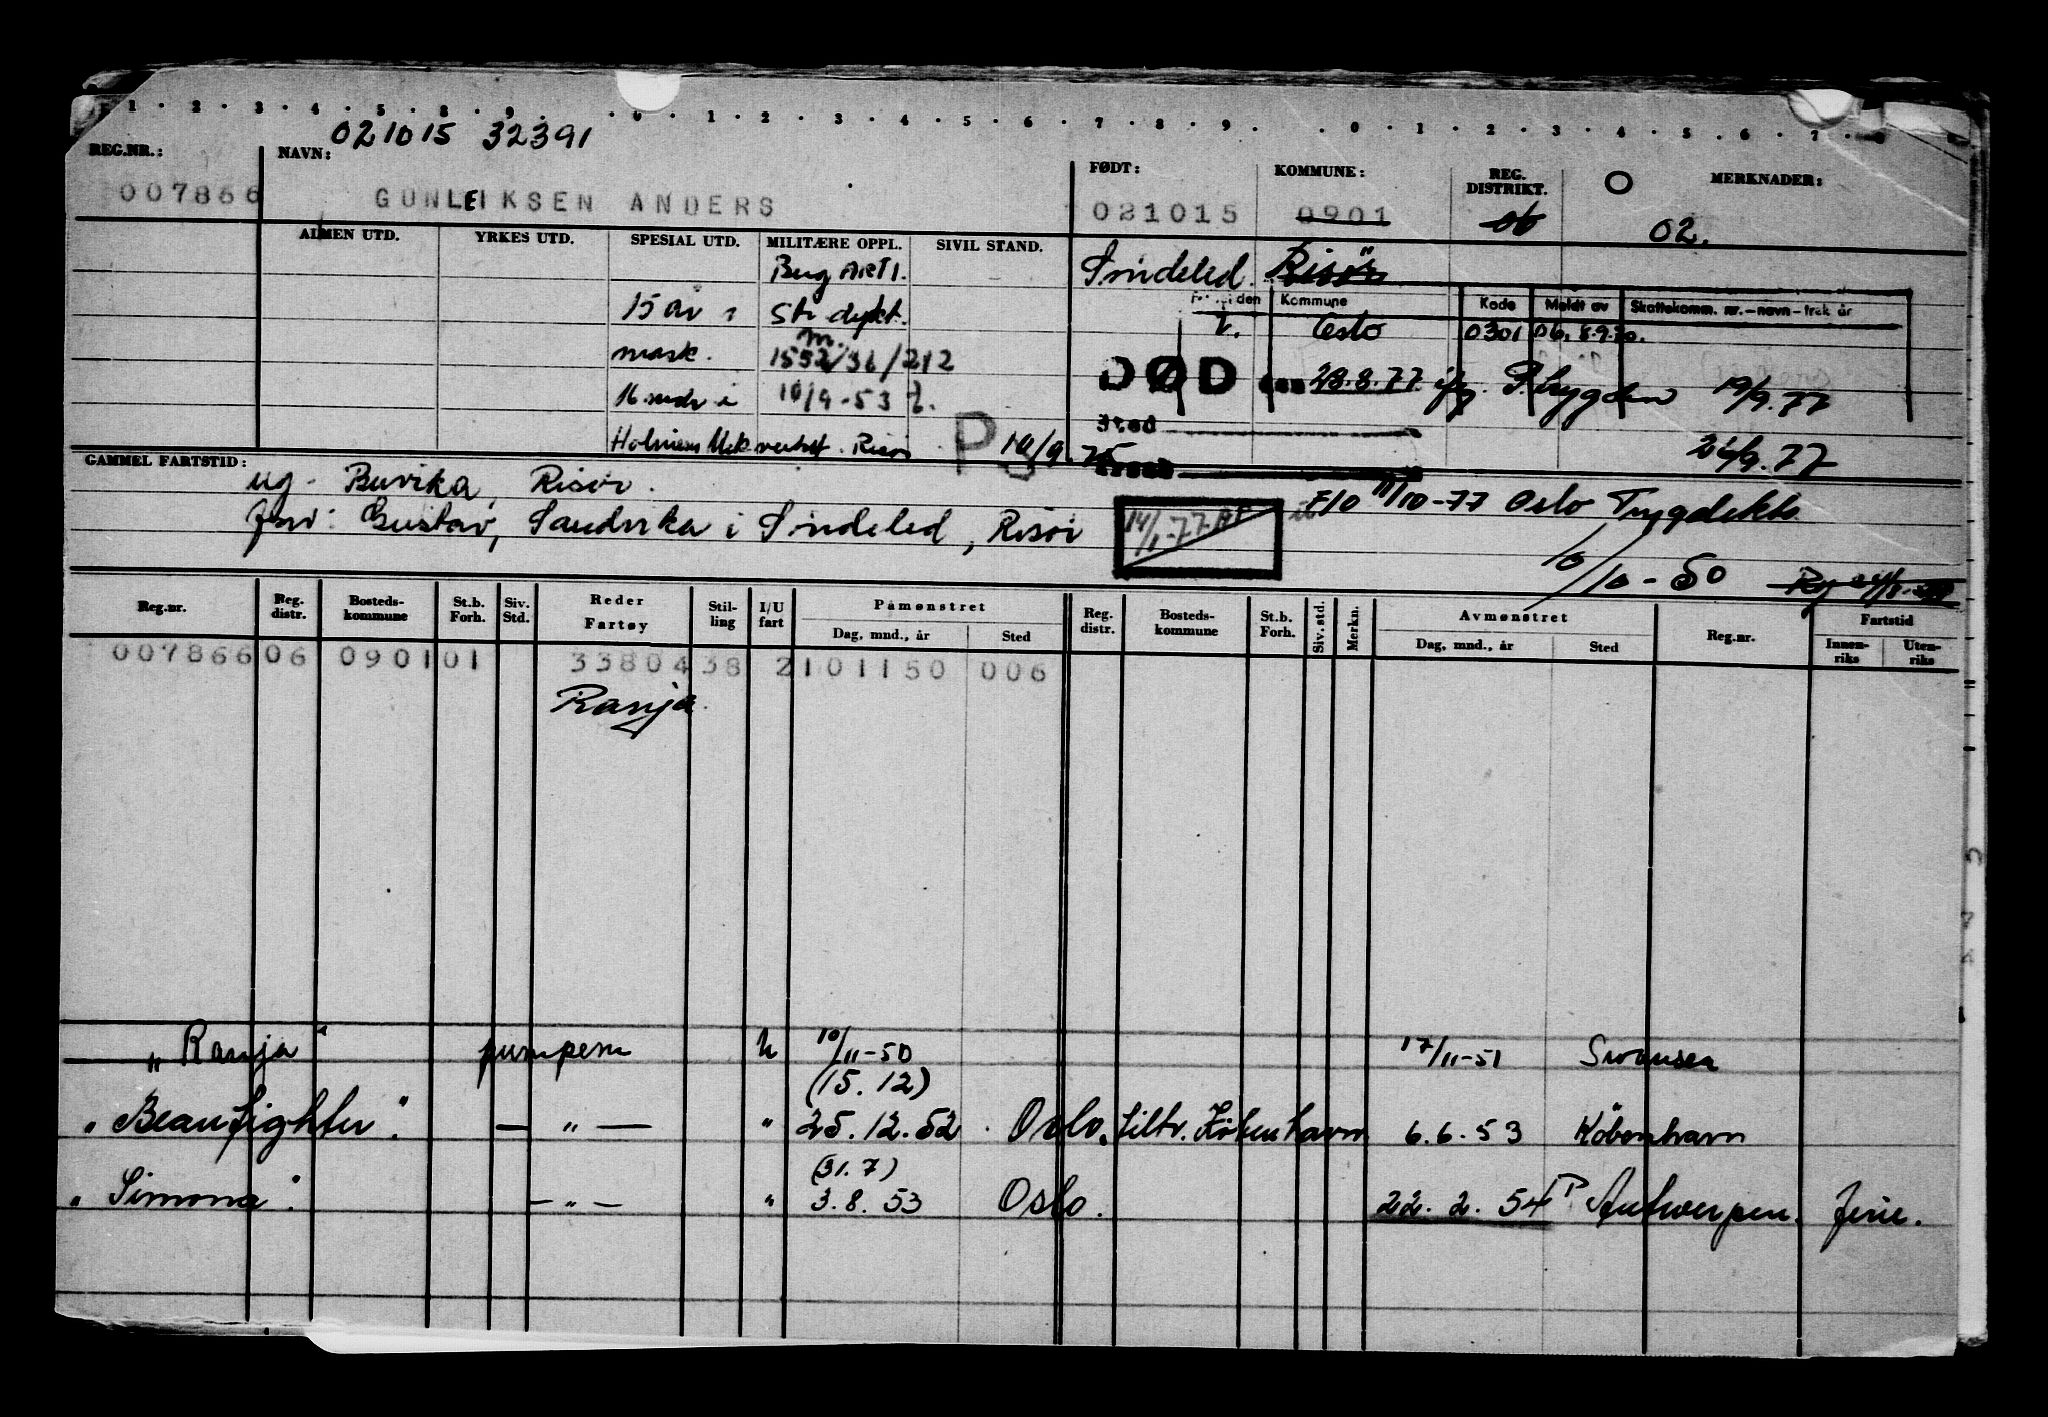 1 2 3 4 5 8 9 0 1 2 3 4 5 6 7 8 9 0 1 2 3 4 5 6 7 8
021015 32391
REG.NR.: NAVN: FØDT: KOMMUNE: REG. DISTRIKT. O MERKNADER:
007866 GUNLEIKSEN ANDERS 021015 0901 06 02.
ALMEN UTD. YRKES UTD. SPESIAL UTD. MILITÆRE OPPL. SIVIL STAND. Søndeled Risör
Kommune Kode Meldt av Skattekomm. nr.-navn-trek år
15 år i Str dykt. Oslo 0301 06. 8.9.70.
mask. m. 1552/36/212 DØD den 28.8.77 19/9.77
16 mdr i 10/9-53
Sted
Holmens Mek verkst. Risör P 10/9.75 26/9.77
GAMMEL FARTSTID: ug. Buvika, Risør.
F10 11/10-77 Oslo Trygdekto
far: Gustav, Sandvika i Søndeled, Risör 14/1-77
10/10-50
Reg.nr. Reg. distr. Bosteds- kommune St.b. Forh. Siv. Std. Reder Fartøy Stil- ling I/U fart Påmønstret Dag, mnd., år Sted Reg. distr. Bosteds- kommune St.b. Forh. Siv. std. Merkn. Avmønstret Dag, mnd., år Sted Reg.nr. Fartstid Innen- riks Uten- riks
007866 06 0901 01 33804 38 2 101150 006
Ranja
"Ranja" pumpem U 10/11-50 17/11-51 Swansea
(15.12)
"Beaufighter". — " — " 25.12.52 Oslo. tiltr. København 6.6.53 København
(31.7)
"Simona". — " — " 3.8.53 Oslo. 22.2.54 Antwerpen. ferie.